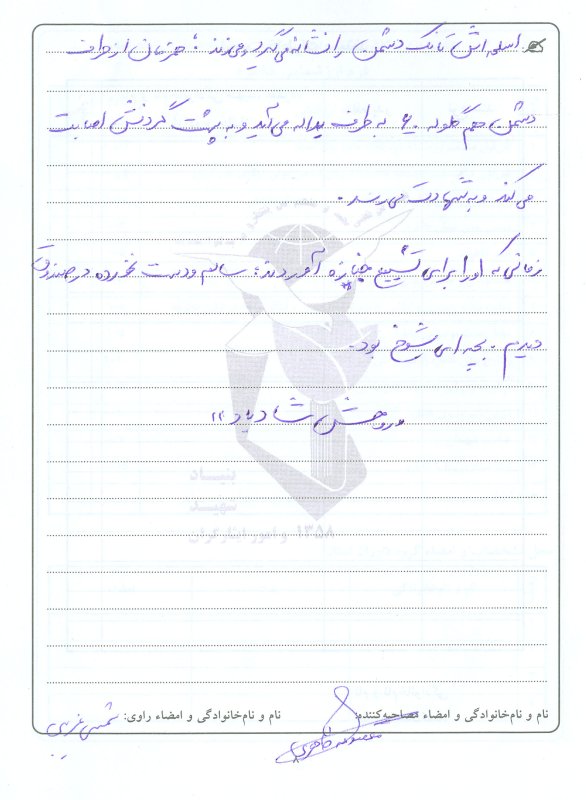 اسلحه اش تانک دشمن را نشانه می گیرد و میزند ؛ همزمان از طرف
دشمن هم گلوله ۶۰ به طرف یداله می آید و به پشت گردنش اصابت
می کند و به شهادت می رسد .
زمانی که او را برای تشییع جنازه آوردند ؛ سالم و دست نخورده در صندوق
دیدیم . بچه ای شوخ بود .
روحش شاد باد !!
بنیاد
شهید
و امور ایثارگران ۱۳۵۸
نام و نام‌خانوادگی و امضاء مصاحبه‌کننده:
نام و نام‌خانوادگی و امضاء راوی: